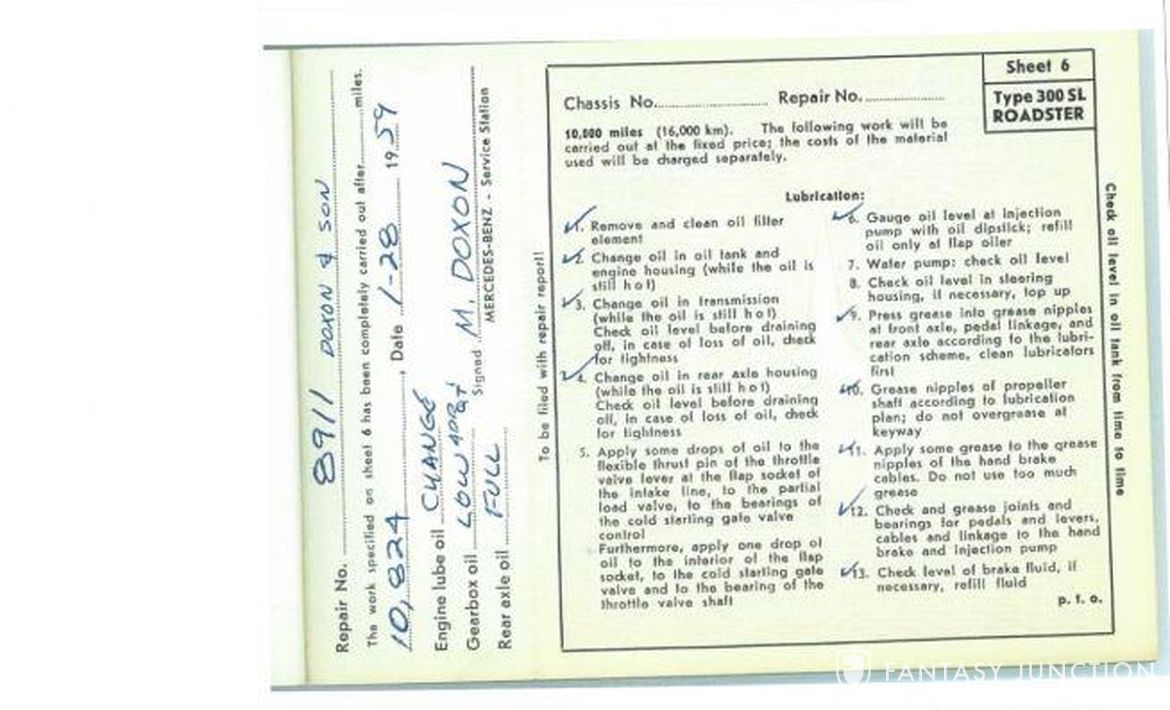 Repair No. 8911 DOXON & SON
The work specified on sheet 6 has been completely carried out after miles.
10,824, Date 1-28 1959
Engine lube oil CHANGE
Gearbox oil LOW
Rear axle oil FULL
Signed M. DOXON
MERCEDES-BENZ - Service Station
To be filed with repair report!
Sheet 6
Type 300 SL
ROADSTER
Chassis No. Repair No.
10,000 miles (16,000 km). The following work will be
carried out at the fixed price; the costs of the material
used will be charged separately.
Lubrication:
1. Remove and clean oil filter
element
2. Change oil in oil tank and
engine housing (while the oil is
still h o t)
3. Change oil in transmission
(while the oil is still h o t)
Check oil level before draining
off, in case of loss of oil, check
for tightness
4. Change oil in rear axle housing
(while the oil is still h o t)
Check oil level before draining
off, in case of loss of oil, check
for tightness
5. Apply some drops of oil to the
flexible thrust pin of the throttle
valve lever at the flap socket of
the intake line, to the partial
load valve, to the bearings of
the cold starting gate valve
control
Furthermore, apply one drop of
oil to the interior of the flap
socket, to the cold starting gate
valve and to the bearing of the
throttle valve shaft
6. Gauge oil level at injection
pump with oil dipstick; refill
oil only at flap oiler
7. Water pump: check oil level
8. Check oil level in steering
housing, if necessary, top up
9. Press grease into grease nipples
at front axle, pedal linkage, and
rear axle according to the lubri-
cation scheme, clean lubricators
first
10. Grease nipples of propeller
shaft according to lubrication
plan; do not overgrease at
keyway
11. Apply some grease to the grease
nipples of the hand brake
cables. Do not use too much
grease
12. Check and grease joints and
bearings for pedals and levers,
cables and linkage to the hand
brake and injection pump
13. Check level of brake fluid, if
necessary, refill fluid
p. t. o.
Check oil level in oil tank from time to time
FANTASY JUNCTION